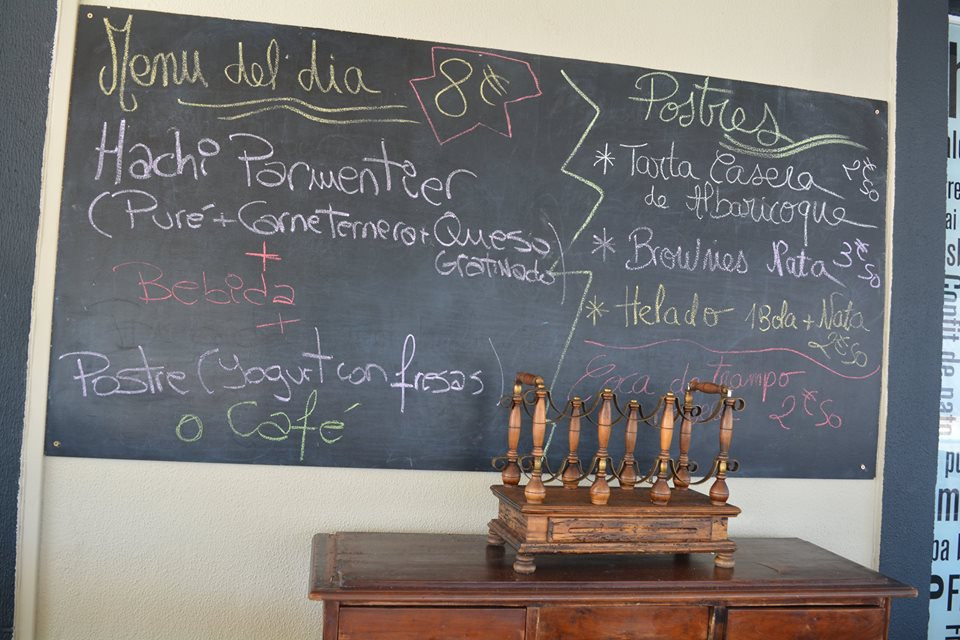 Menu del dia 8€
Hachi Parmentier
(Puré + Carne ternera + Queso
Gratinado)
+
Bebida
+
Postre (yogurt con fresas)
o Café
Postres
* Tarta Casera
de Albaricoque 2€50
* Brownies Nata 3€50
* Helado 1 Bola + Nata
2€50
Coca de trampo
2€50
Confit de